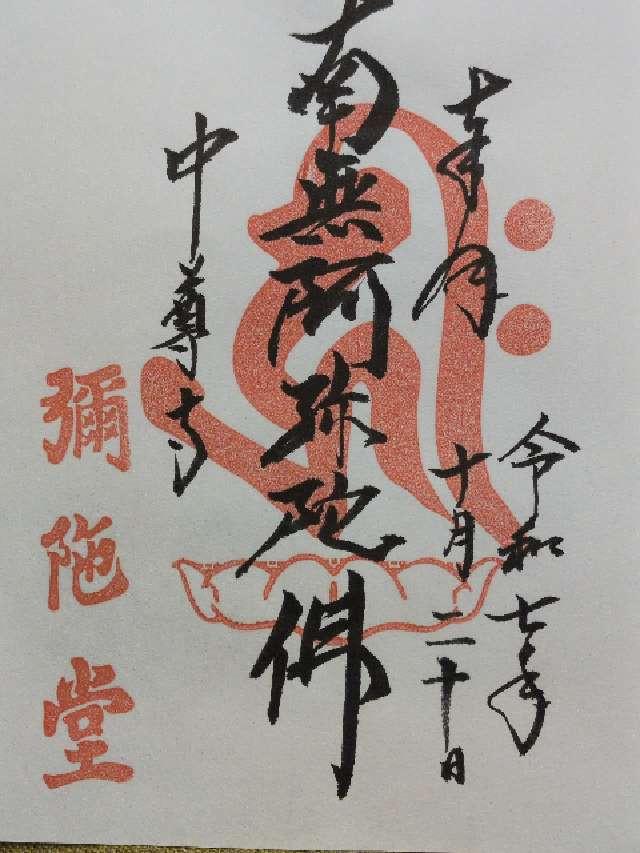 奉拝
令和七年
十月二十日
南無阿弥陀佛
中尊寺
彌陁堂